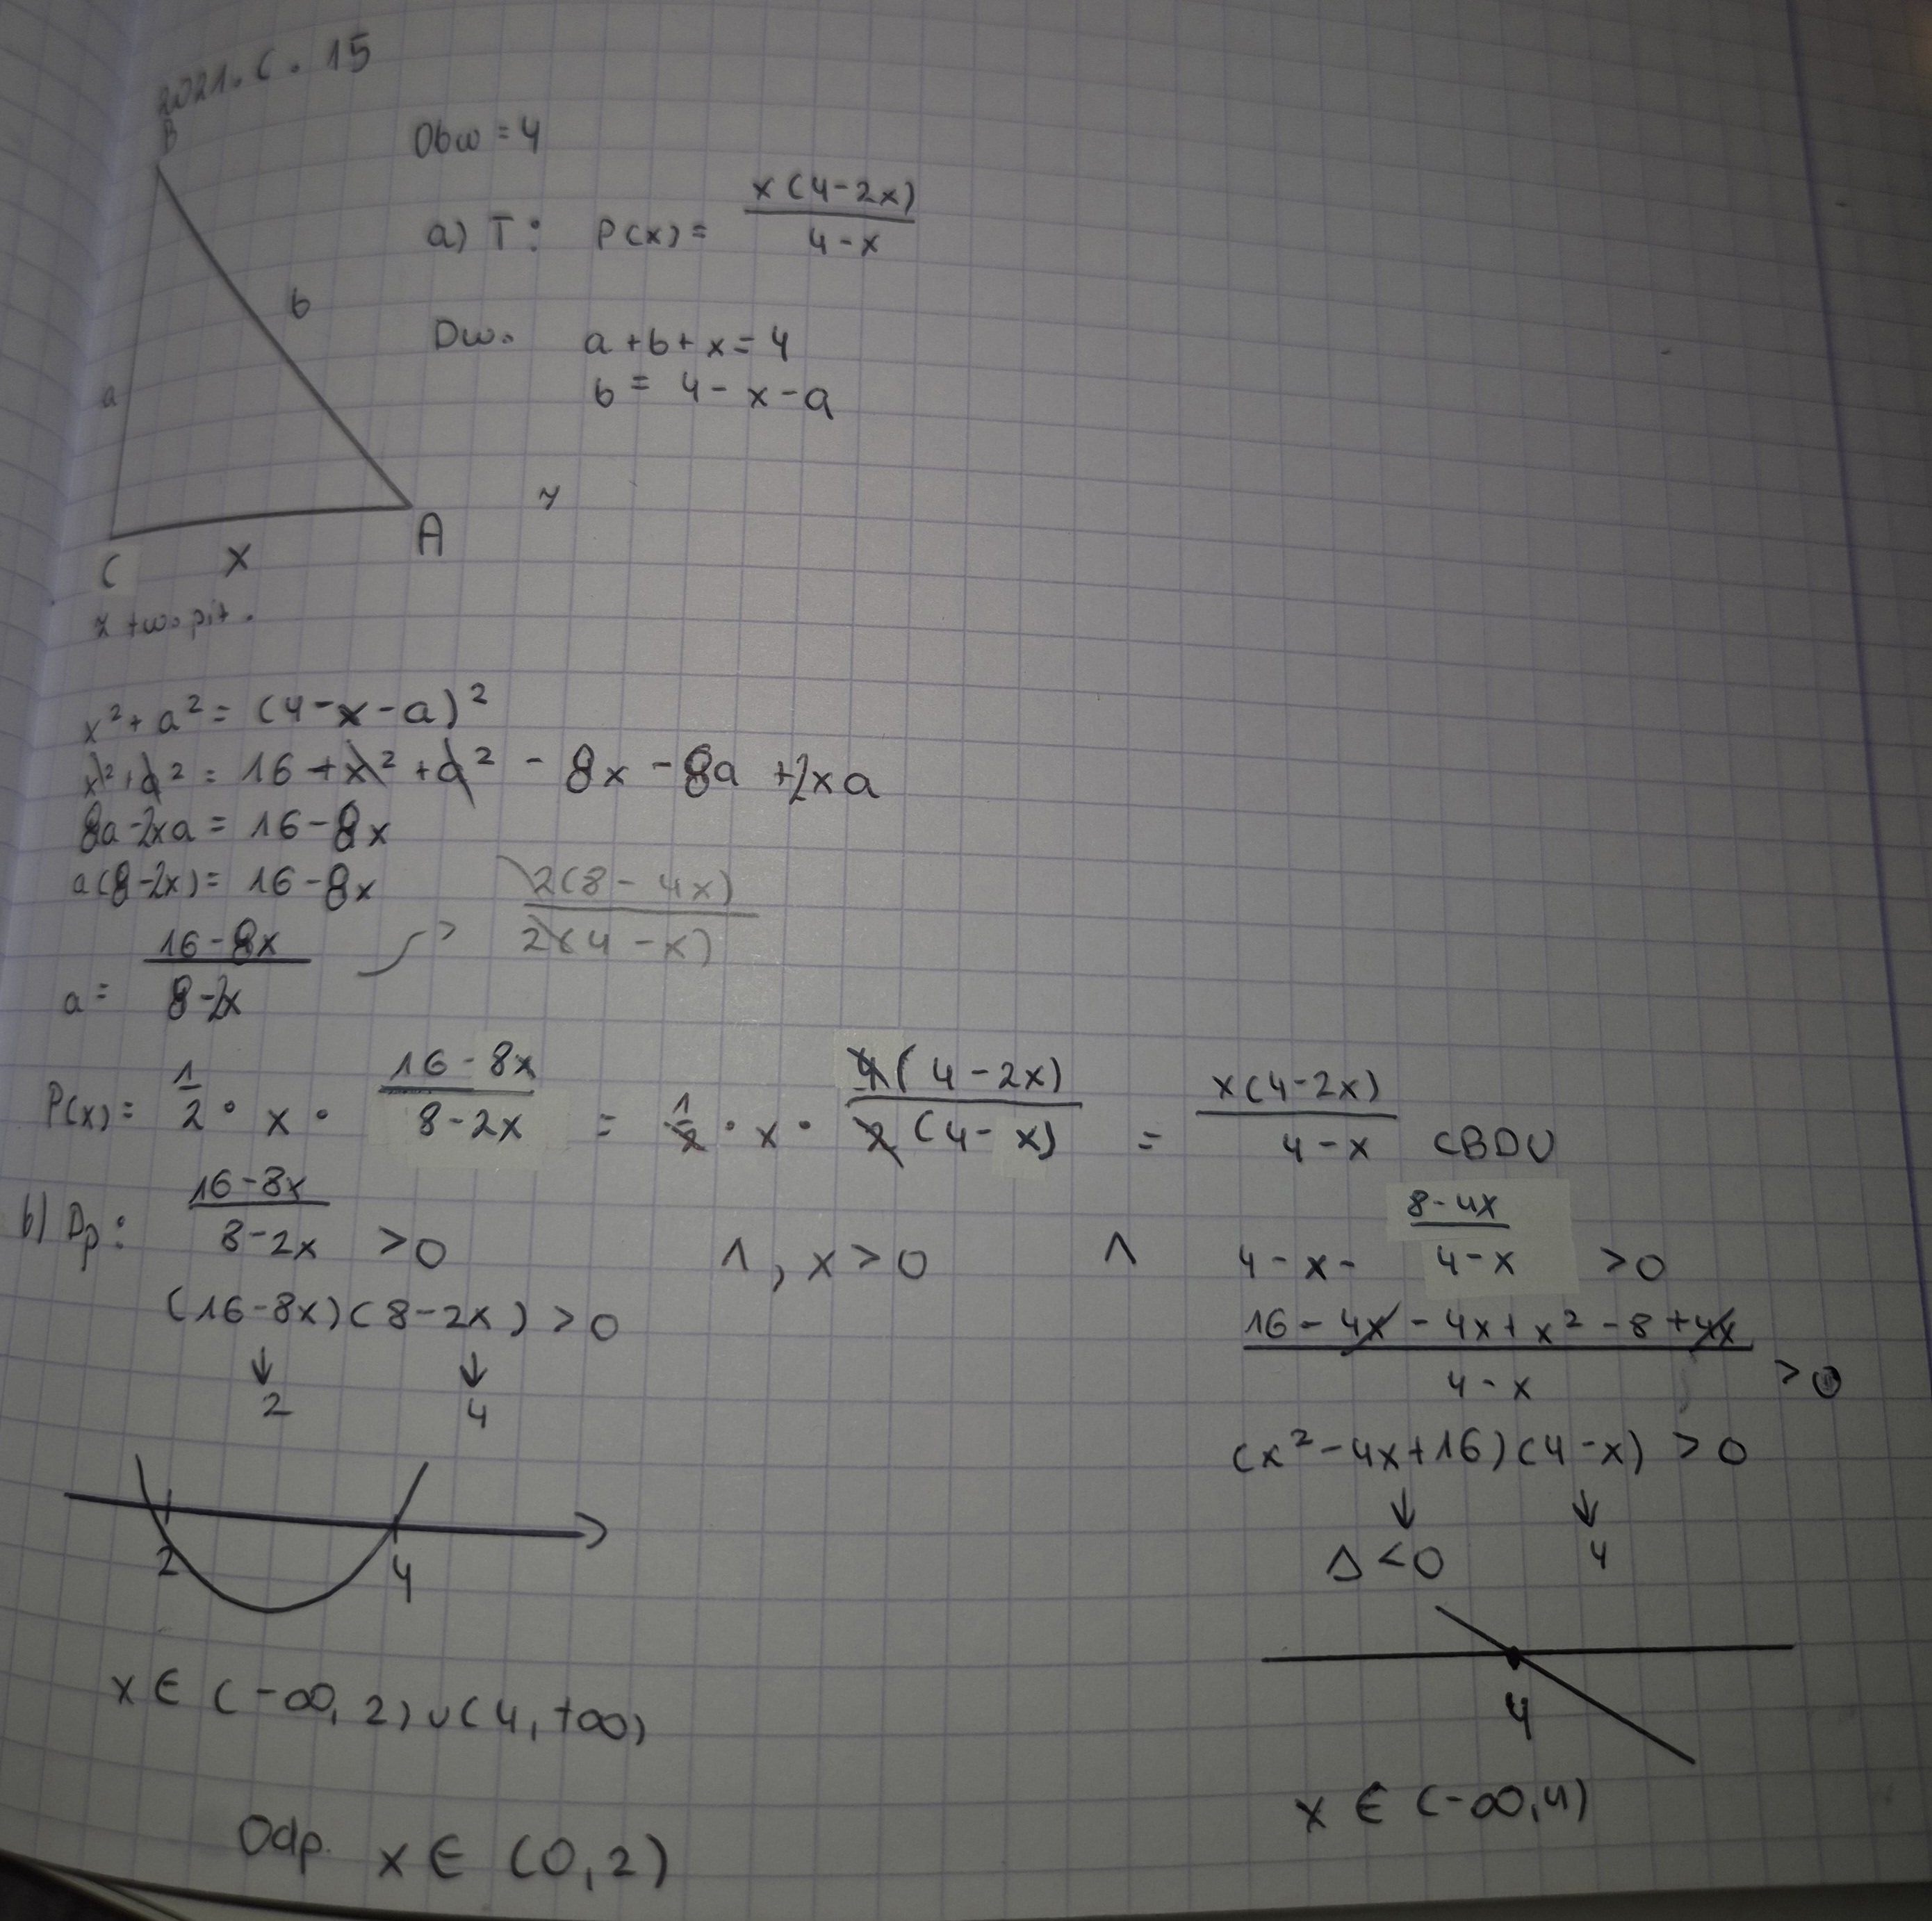 2021. C. 15
B
Obw = 4
a) T: P(x) = x(4-2x) / 4-x
b
Dw. a+b+x=4
a
b = 4-x-a
C x A
z tw. pit.
x² + a² = (4-x-a)²
x² + a² = 16 + x² + a² - 8x - 8a + 2xa
8a-2xa = 16-8x
a(8-2x) = 16-8x
a = 16-8x / 8-2x → 2(8-4x) / 2(4-x)
P(x) = 1/2 · x · 16-8x / 8-2x = 1/2 · x · 4(4-2x) / 2(4-x) = x(4-2x) / 4-x CBDU
b) Dp: 16-8x / 8-2x > 0 ∧, x > 0 ∧ 4-x- 8-4x / 4-x > 0
(16-8x)(8-2x) > 0
16-4x-4x+x²-8+4x / 4-x > 0
↓ ↓
2 4
(x²-4x+16)(4-x) > 0
↓ ↓
Δ<0 4
2 4
4
x ∈ (-∞, 2) ∪ (4, +∞)
x ∈ (-∞, 4)
Odp. x ∈ (0, 2)